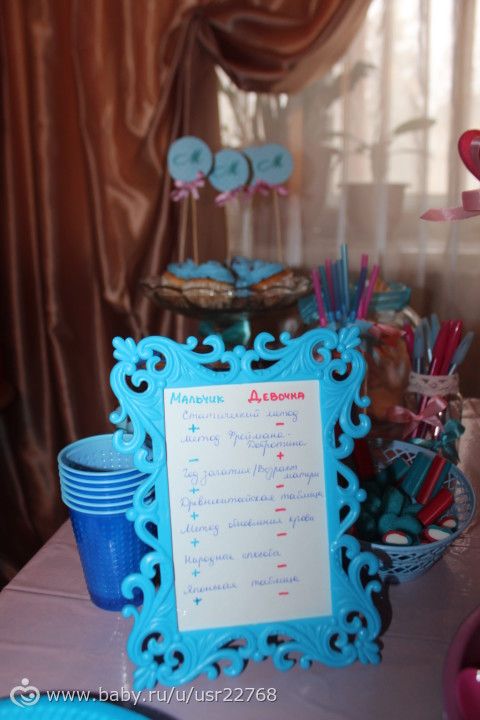 М М М
Мальчик Девочка
Статический метод
+ -
Метод Фреймана-
Добротина
- +
Год зачатия/Возраст
матери
+ -
Древнекитайская таблица
+ -
Метод обновления крови
+ -
Народные способы
+ -
Японская таблица
+ -
www.baby.ru/u/usr22768